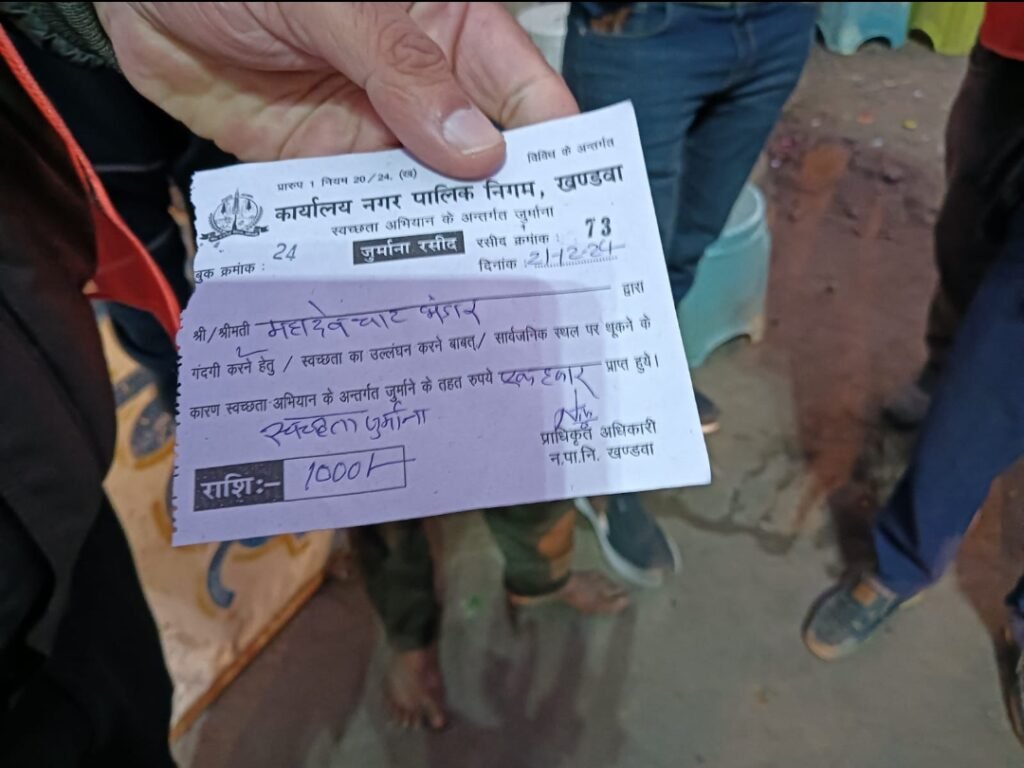 प्रारुप 1 नियम 20/24. (ख)
विविध के अन्तर्गत
कार्यालय नगर पालिक निगम, खण्डवा
स्वच्छता अभियान के अन्तर्गत जुर्माना
बुक क्रमांक : 24
जुर्माना रसीद
रसीद क्रमांक : 73
दिनांक : 21-12-24
श्री/श्रीमती महादेव चाट भंडार द्वारा
गंदगी करने हेतु / स्वच्छता का उल्लंघन करने बाबत्/ सार्वजनिक स्थल पर थूकने के
कारण स्वच्छता अभियान के अन्तर्गत जुर्माने के तहत रुपये एक हजार प्राप्त हुये।
स्वच्छता जुर्माना
प्राधिकृत अधिकारी
न.पा.नि. खण्डवा
राशि :- 1000/-